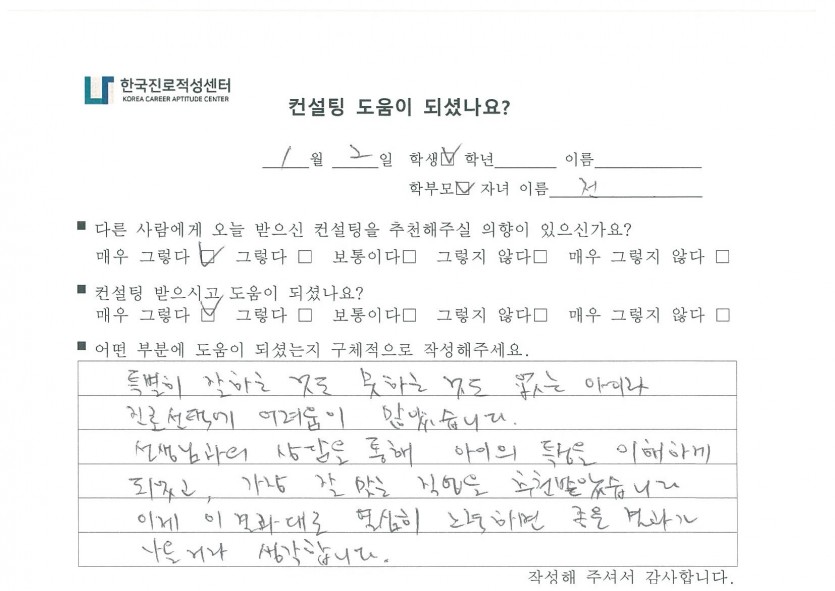 한국진로적성센터
KOREA CAREER APTITUDE CENTER
컨설팅 도움이 되셨나요?
1 월 2 일 학생☑ 학년 이름
학부모☑ 자녀 이름 전
■ 다른 사람에게 오늘 받으신 컨설팅을 추천해주실 의향이 있으신가요?
매우 그렇다 ☑ 그렇다 □ 보통이다□ 그렇지 않다□ 매우 그렇지 않다 □
■ 컨설팅 받으시고 도움이 되셨나요?
매우 그렇다 ☑ 그렇다 □ 보통이다□ 그렇지 않다□ 매우 그렇지 않다 □
■ 어떤 부분에 도움이 되셨는지 구체적으로 작성해주세요.
특별히 잘하는 것도 못하는 것도 없는 아이라
진로선택에 어려움이 많았습니다.
선생님과의 상담을 통해 아이의 특성을 이해하게
되었고, 가장 잘 맞는 직업을 추천받았습니다
이제 이 결과대로 열심히 노력하면 좋은 결과가
나올거라 생각합니다.
작성해 주셔서 감사합니다.